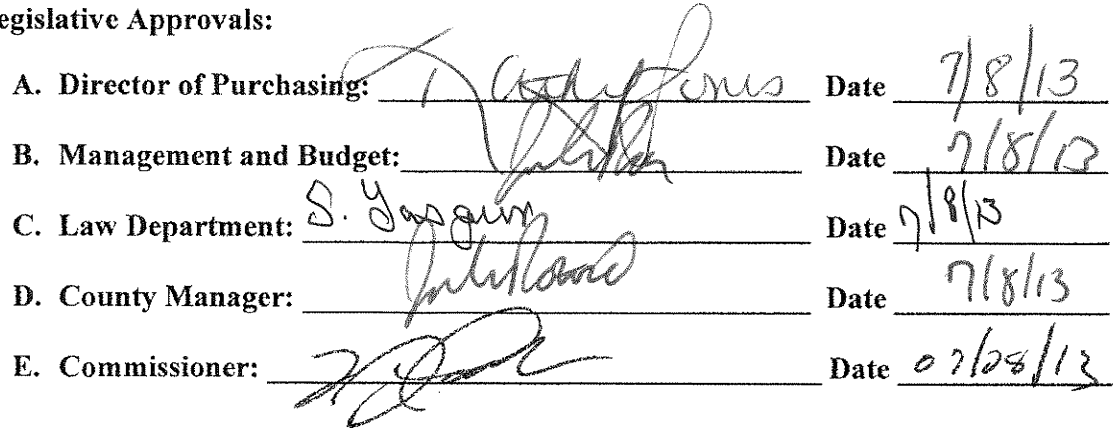 egislative Approvals:
A. Director of Purchasing: Jones Date 7/8/13
B. Management and Budget: Date 7/8/13
C. Law Department: S. Date 7/8/13
D. County Manager: Date 7/8/13
E. Commissioner: Date 07/28/13